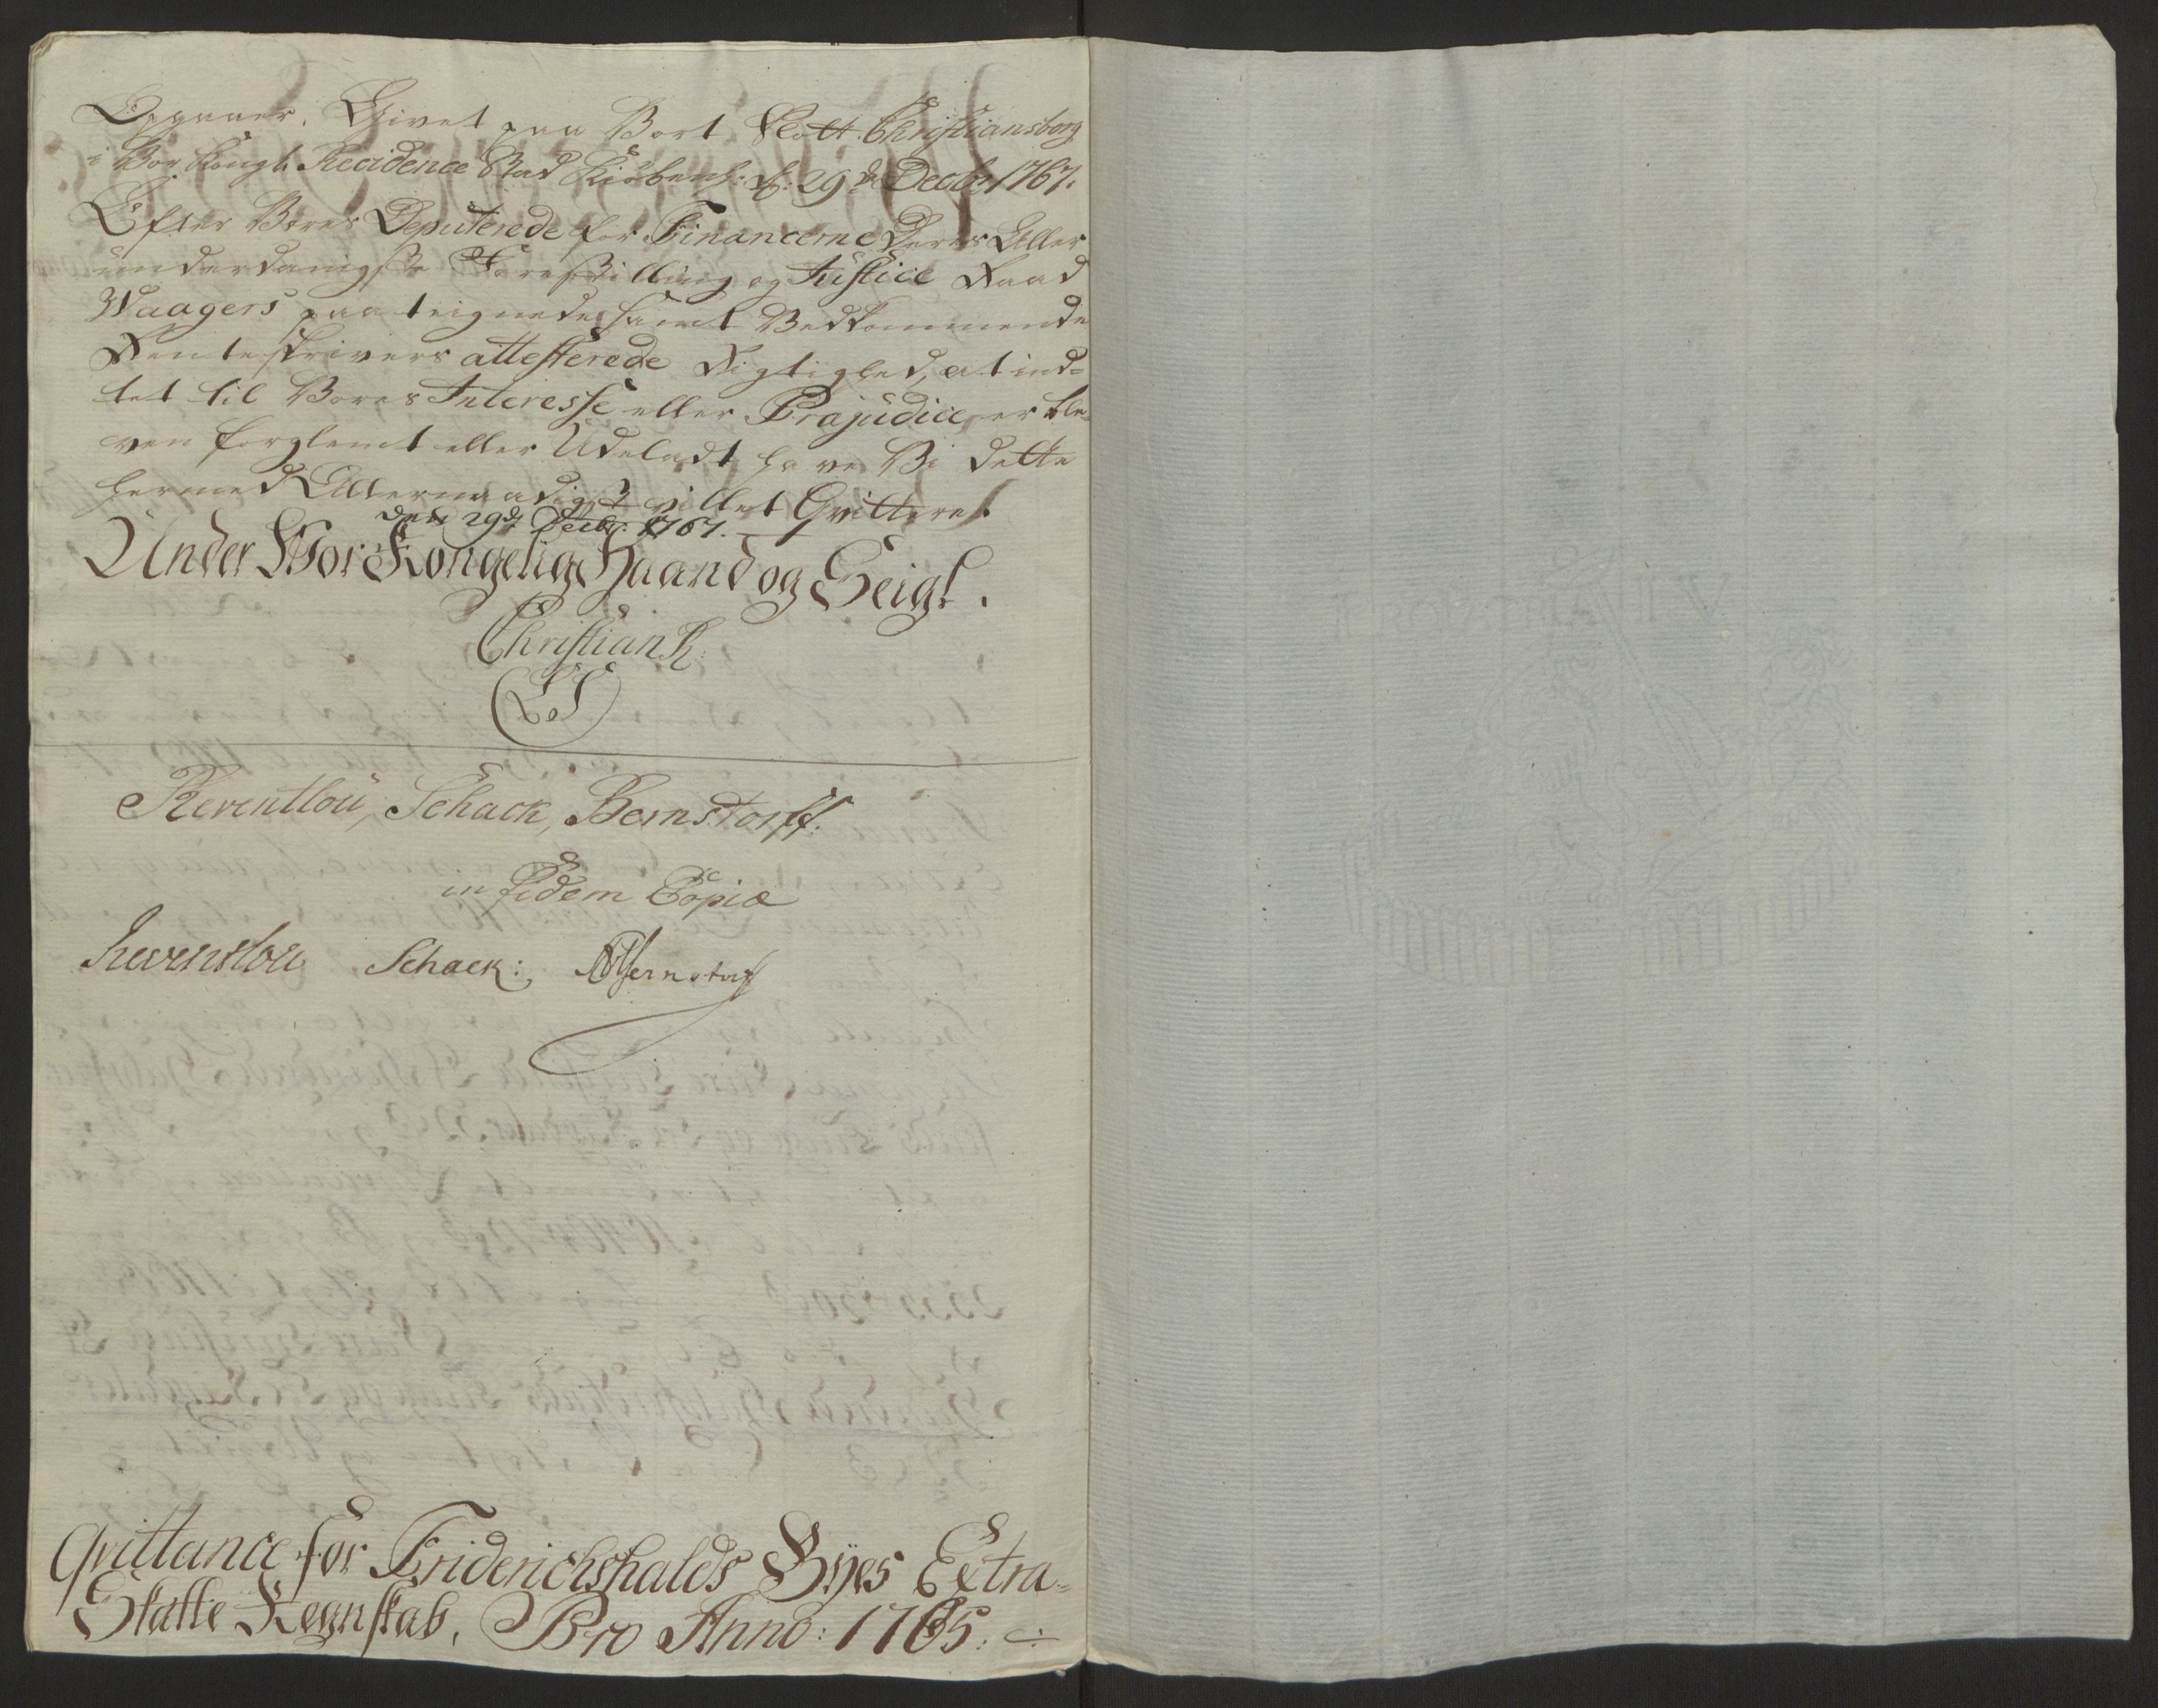 Opgaaer. Givet paa Vort Slott Christiansborg
i Vor Kongl: Recidence Stad Kiøbenh: d: 29de Decbr 1767.
Efter Vores Deputerede for Financerne Deres Aller
underdanigste Forestilling og Justice Raad
Waagers paateignede samt Vedkommende
Renteskrivers attesterede Rigtighed, at ind=
tet til Vores Interesse eller Præjudice, er ble=
ven forglemt eller Udeladt have Vi dette
hermed Allernaadigst villet Qvittere.
den 29de Decbr: 1767.
Under Vor Kongelig Haand og Seigl.
Christian R:
(LS)
Reventlou, Schack, Bernstorff.
in fidem Copiæ
Reventlou Schack: Bernstorff
Qvittance for Friderichshalds Byes Extra=
Skatte Regnskab, Pro Anno: 1765.